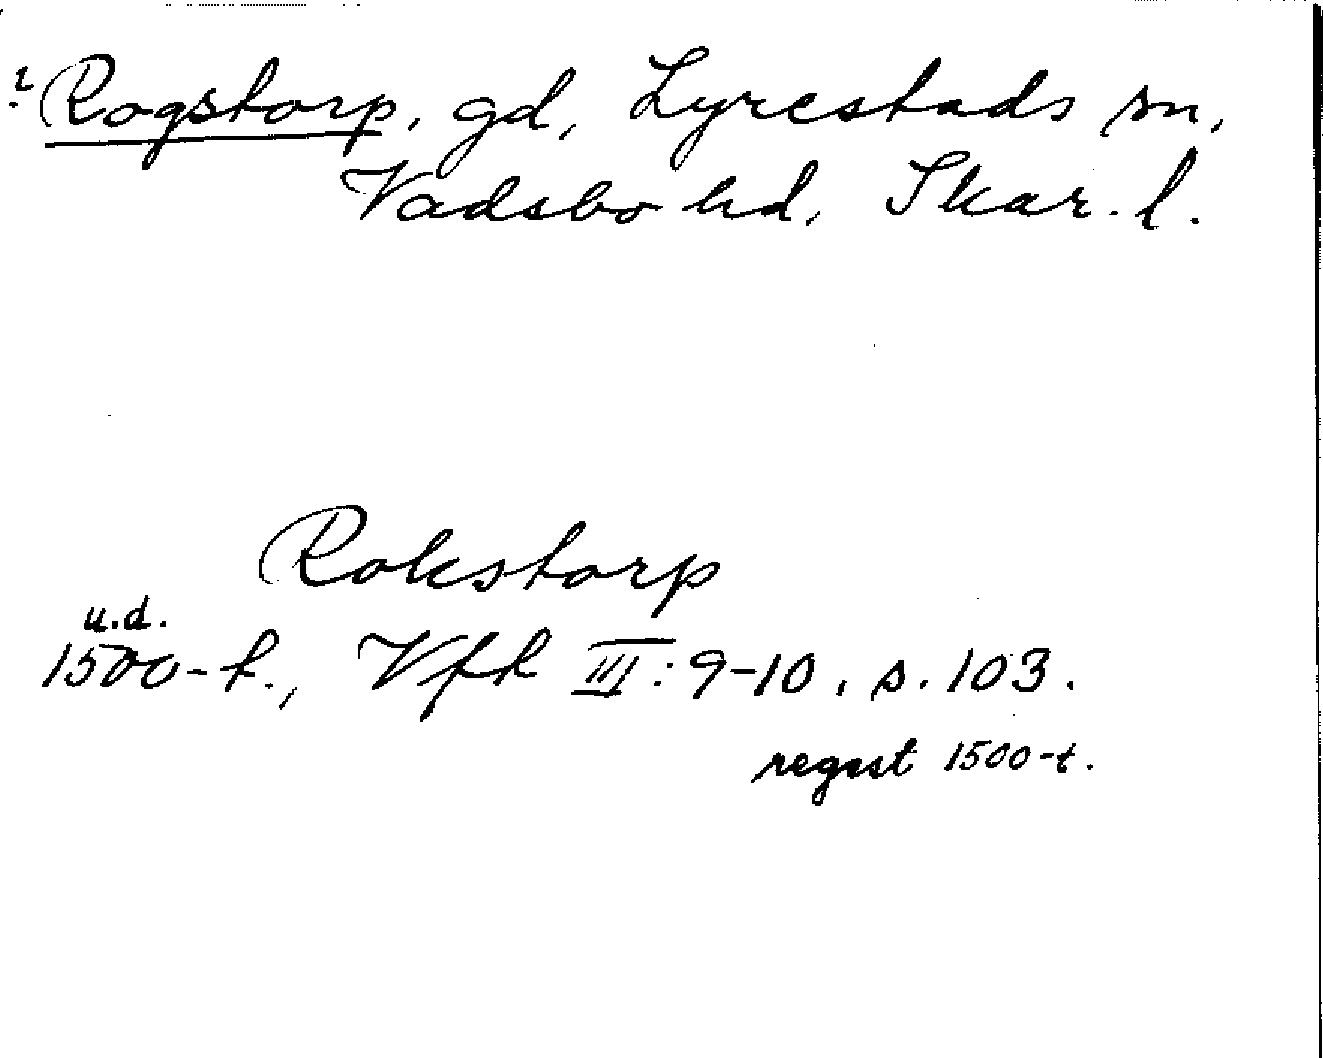 ? Rogstorp, gd, Lyrestads sn,
Vadsbo hd, Skar. l.
Rokstorp
u.d.
1500-t., Vfh III: 9-10, s. 103.
regest 1500-t.